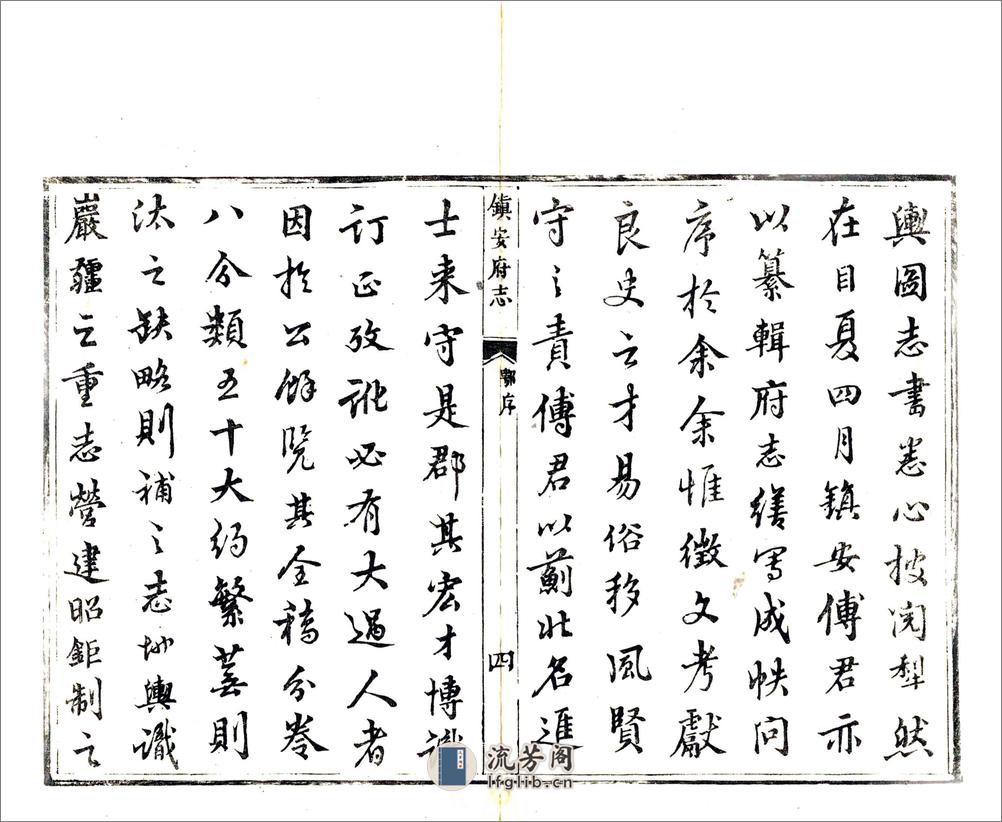 輿圖志書悉心披閱犁然
在目夏四月鎮安傅君亦
以纂輯府志繕寫成帙問
序於余余惟徵文考獻
良史之才易俗移風賢
守之責傅君以薊北名進
鎮安府志
鄂序
四
士來守是郡其宏才博識
訂正攷訛必有大過人者
因於公餘覽其全稿分卷
八分類五十大約繁蕪則
汰之缺略則補之志地輿識
巖疆之重志營建昭鉅制之
流芳阁
lfglib.cn